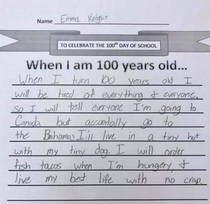 Name Emma Knight
TO CELEBRATE THE 100th DAY OF SCHOOL
When I am 100 years old...
When I turn 100 years old I
will be tired of everything & everyone.
So I will tell everyone I'm going to
Canada but accuntally go to
the Bahamas I'll live in a tiny hut
with my tiny dog. I will order
fish tacos when I'm hungery &
live my best life with no crap